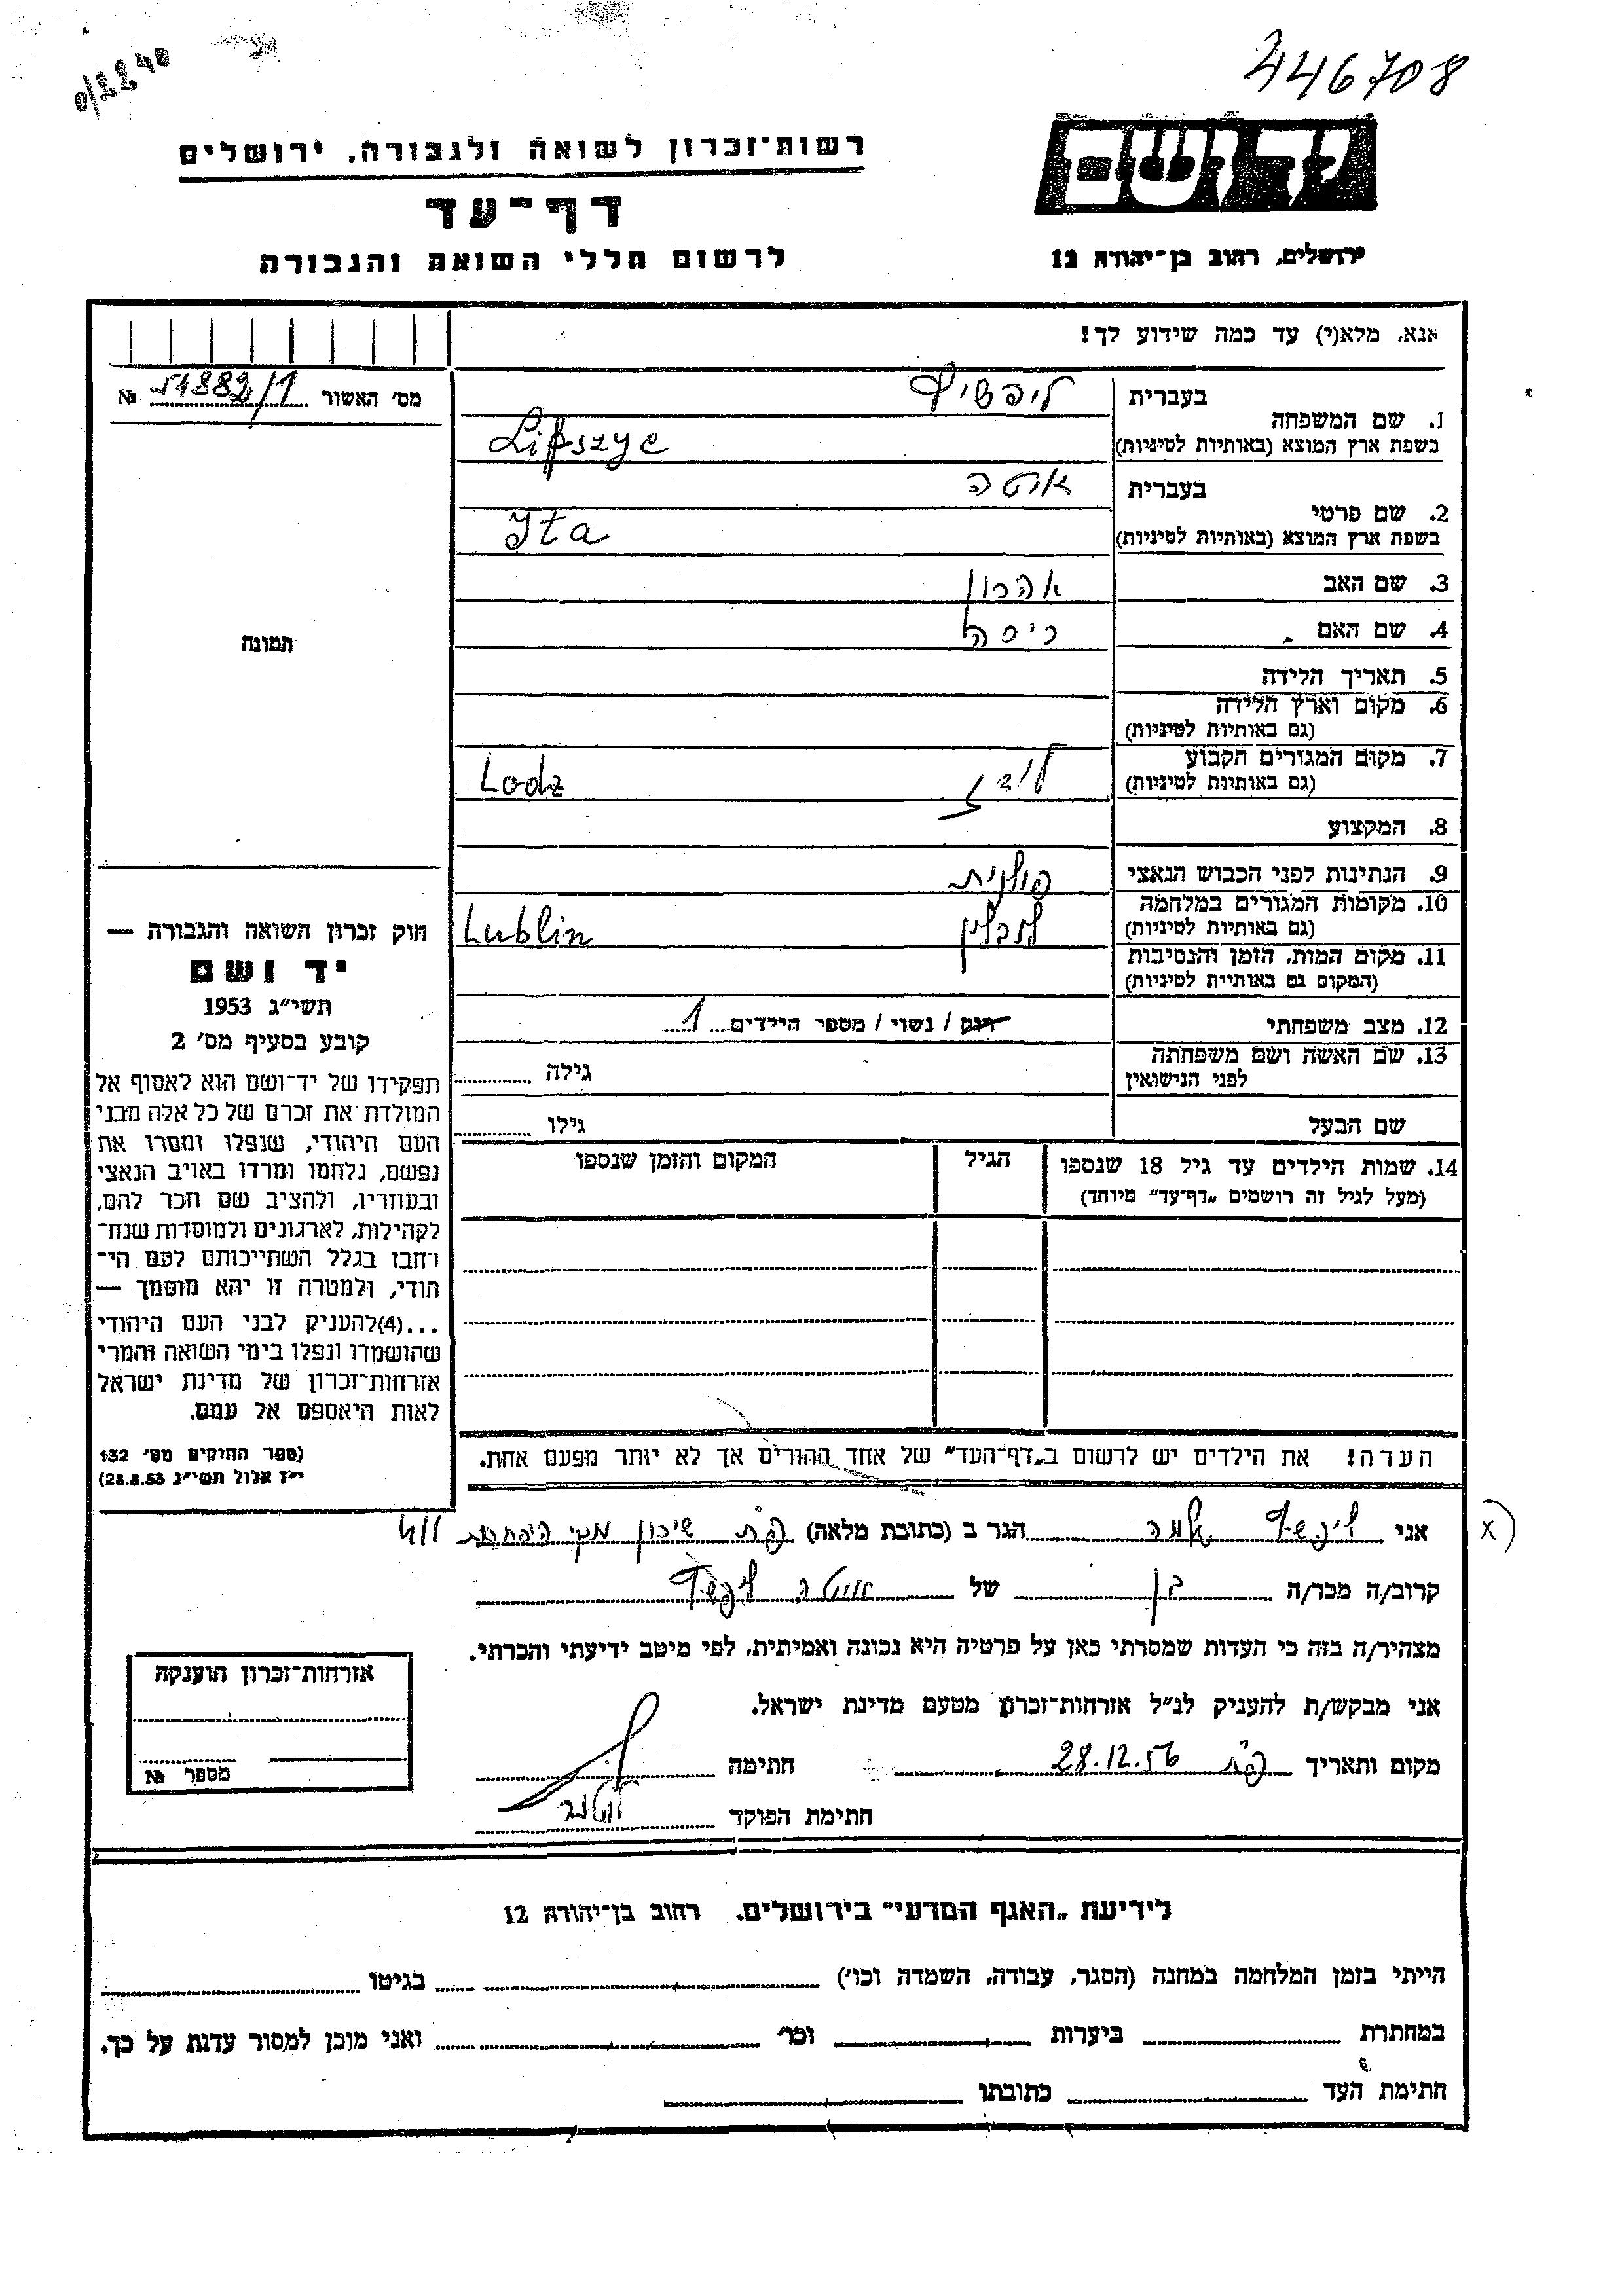 446708
0/2240
רשות-זכרון לשואה ולגבורה, ירושלים
יד ושם
דף-עד
לרשום חללי השואה והגבורה
ירושלים, רחוב בן-יהודה 12
אנא, מלא(י) עד כמה שידוע לך!
מס' האשור 54882/1 №
בעברית ליפשיץ
1. שם המשפחה
בשפת ארץ המוצא (באותיות לטיניות) Lipszyc
בעברית איטה
2. שם פרטי
בשפת ארץ המוצא (באותיות לטיניות) Ita
3. שם האב אהרון
4. שם האם
תמונה
5. תאריך הלידה
6. מקום וארץ הלידה
(גם באותיות לטיניות)
7. מקום המגורים הקבוע לודז Lodz
(גם באותיות לטיניות)
8. המקצוע
9. הנתינות לפני הכבוש הנאצי פולנית
10. מקומות המגורים במלחמה לובלין Lublin
(גם באותיות לטיניות)
11. מקום המות, הזמן והנסיבות
(המקום גם באותיות לטיניות)
12. מצב משפחתי רווק / נשוי / מספר הילדים 1
13. שם האשה ושם משפחתה גילה
לפני הנישואין
שם הבעל גילו
14. שמות הילדים עד גיל 18 שנספו הגיל המקום והזמן שנספו
(מעל לגיל זה רושמים "דף-עד" מיוחד)
חוק זכרון השואה והגבורה —
יד ושם
תשי"ג 1953
קובע בסעיף מס' 2
תפקידו של יד-ושם הוא לאסוף אל
המולדת את זכרם של כל אלה מבני
העם היהודי, שנפלו ומסרו את
נפשם, נלחמו ומרדו באויב הנאצי
ובעוזריו, ולהציב שם וזכר להם,
לקהילות, לארגונים ולמוסדות שנח-
רבו בגלל השתייכותם לעם הי-
הודי, ולמטרה זו יהא מוסמך —
...(4) להעניק לבני העם היהודי
שהושמדו ונפלו בימי השואה והמרי
אזרחות-זכרון של מדינת ישראל
לאות היאספם אל עמם.
(ספר החוקים מס' 132
י"ז אלול תשי"ג 28.8.53)
הערה! את הילדים יש לרשום ב"דף-העד" של אחד ההורים אך לא יותר מפעם אחת.
אני ליפשיץ הגר ב (כתובת מלאה) שיכון
x)
קרוב/ה מכר/ה בן של איטה ליפשיץ
מצהיר/ה בזה כי העדות שמסרתי כאן על פרטיה היא נכונה ואמיתית, לפי מיטב ידיעתי והכרתי.
אני מבקש/ת להעניק לנ"ל אזרחות-זכרון מטעם מדינת ישראל.
מקום ותאריך 28.12.56 חתימה
חתימת הפוקד
אזרחות-זכרון הוענקה
מספר №
לידיעת "האגף המדעי" בירושלים, רחוב בן-יהודה 12
הייתי בזמן המלחמה במחנה (הסגר, עבודה, השמדה וכו') בגיטו
במחתרת ביערות וכו' ואני מוכן למסור עדות על כך.
חתימת העד כתובתו